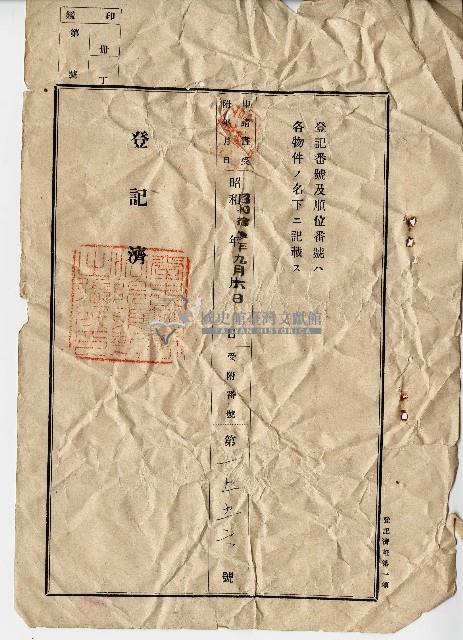 登記番號及順位番號ハ
各物件ノ名下ニ記載ス
申請書受附年月日
昭和 年 九月六日
日
受附番號
第一五五六號
登記濟
印鑑
第 冊 丁
號
國史館臺灣文獻館
TAIWAN HISTORICA